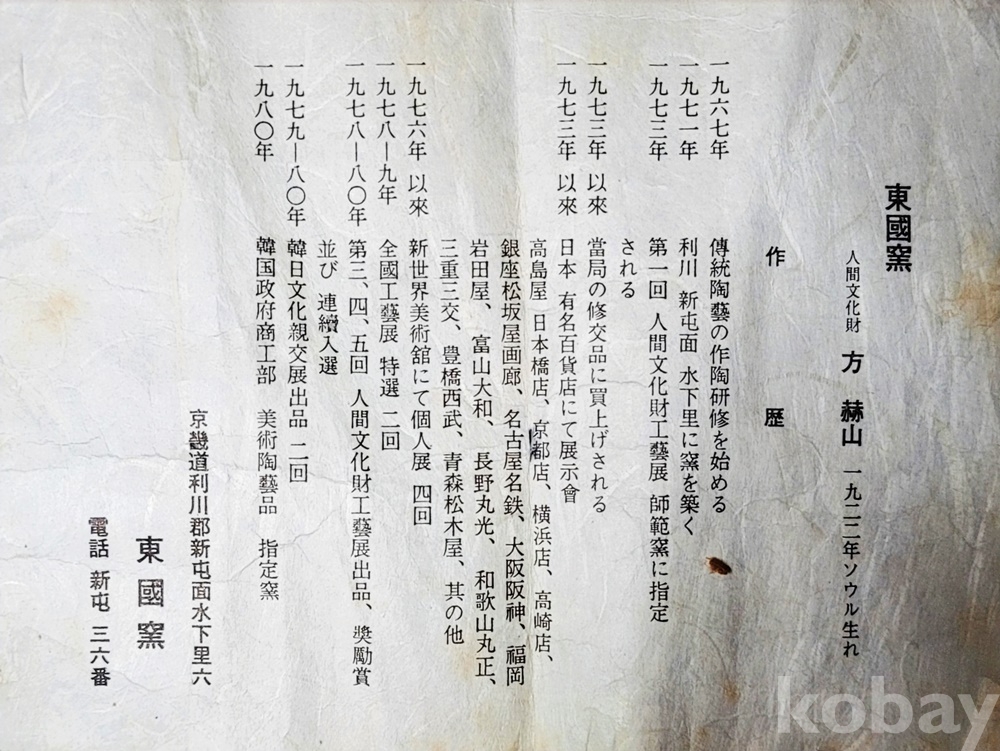 東國窯
人間文化財 方 赫山 一九二二年ソウル生れ
作 歴
一九六七年 傳統陶藝の作陶研修を始める
一九七一年 利川 新屯面 水下里に窯を築く
一九七三年 第一回 人間文化財工藝展 師範窯に指定
される
一九七三年 以來 當局の修交品に買上げされる
一九七三年 以來 日本 有名百貨店にて展示會
高島屋 日本橋店、京都店、横浜店、高崎店、
銀座松坂屋画廊、名古屋名鉄、大阪阪神、福岡
岩田屋、富山大和、長野丸光、和歌山丸正、
三重三交、豊橋西武、青森松木屋、其の他
一九七六年 以來 新世界美術舘にて個人展 四回
一九七八―九年 全國工藝展 特選 二回
一九七八―八〇年 第三、四、五回 人間文化財工藝展出品、奬勵賞
並び 連續入選
一九七九―八〇年 韓日文化親交展出品 二回
一九八〇年 韓国政府商工部 美術陶藝品 指定窯
京畿道利川郡新屯面水下里六
東國窯
電話 新屯 三六番
kobay